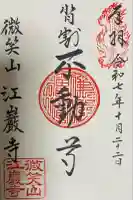 奉拝 令和七年十月二十二日
背割
不動尊
微笑山 江巖寺
微笑山
江巖寺